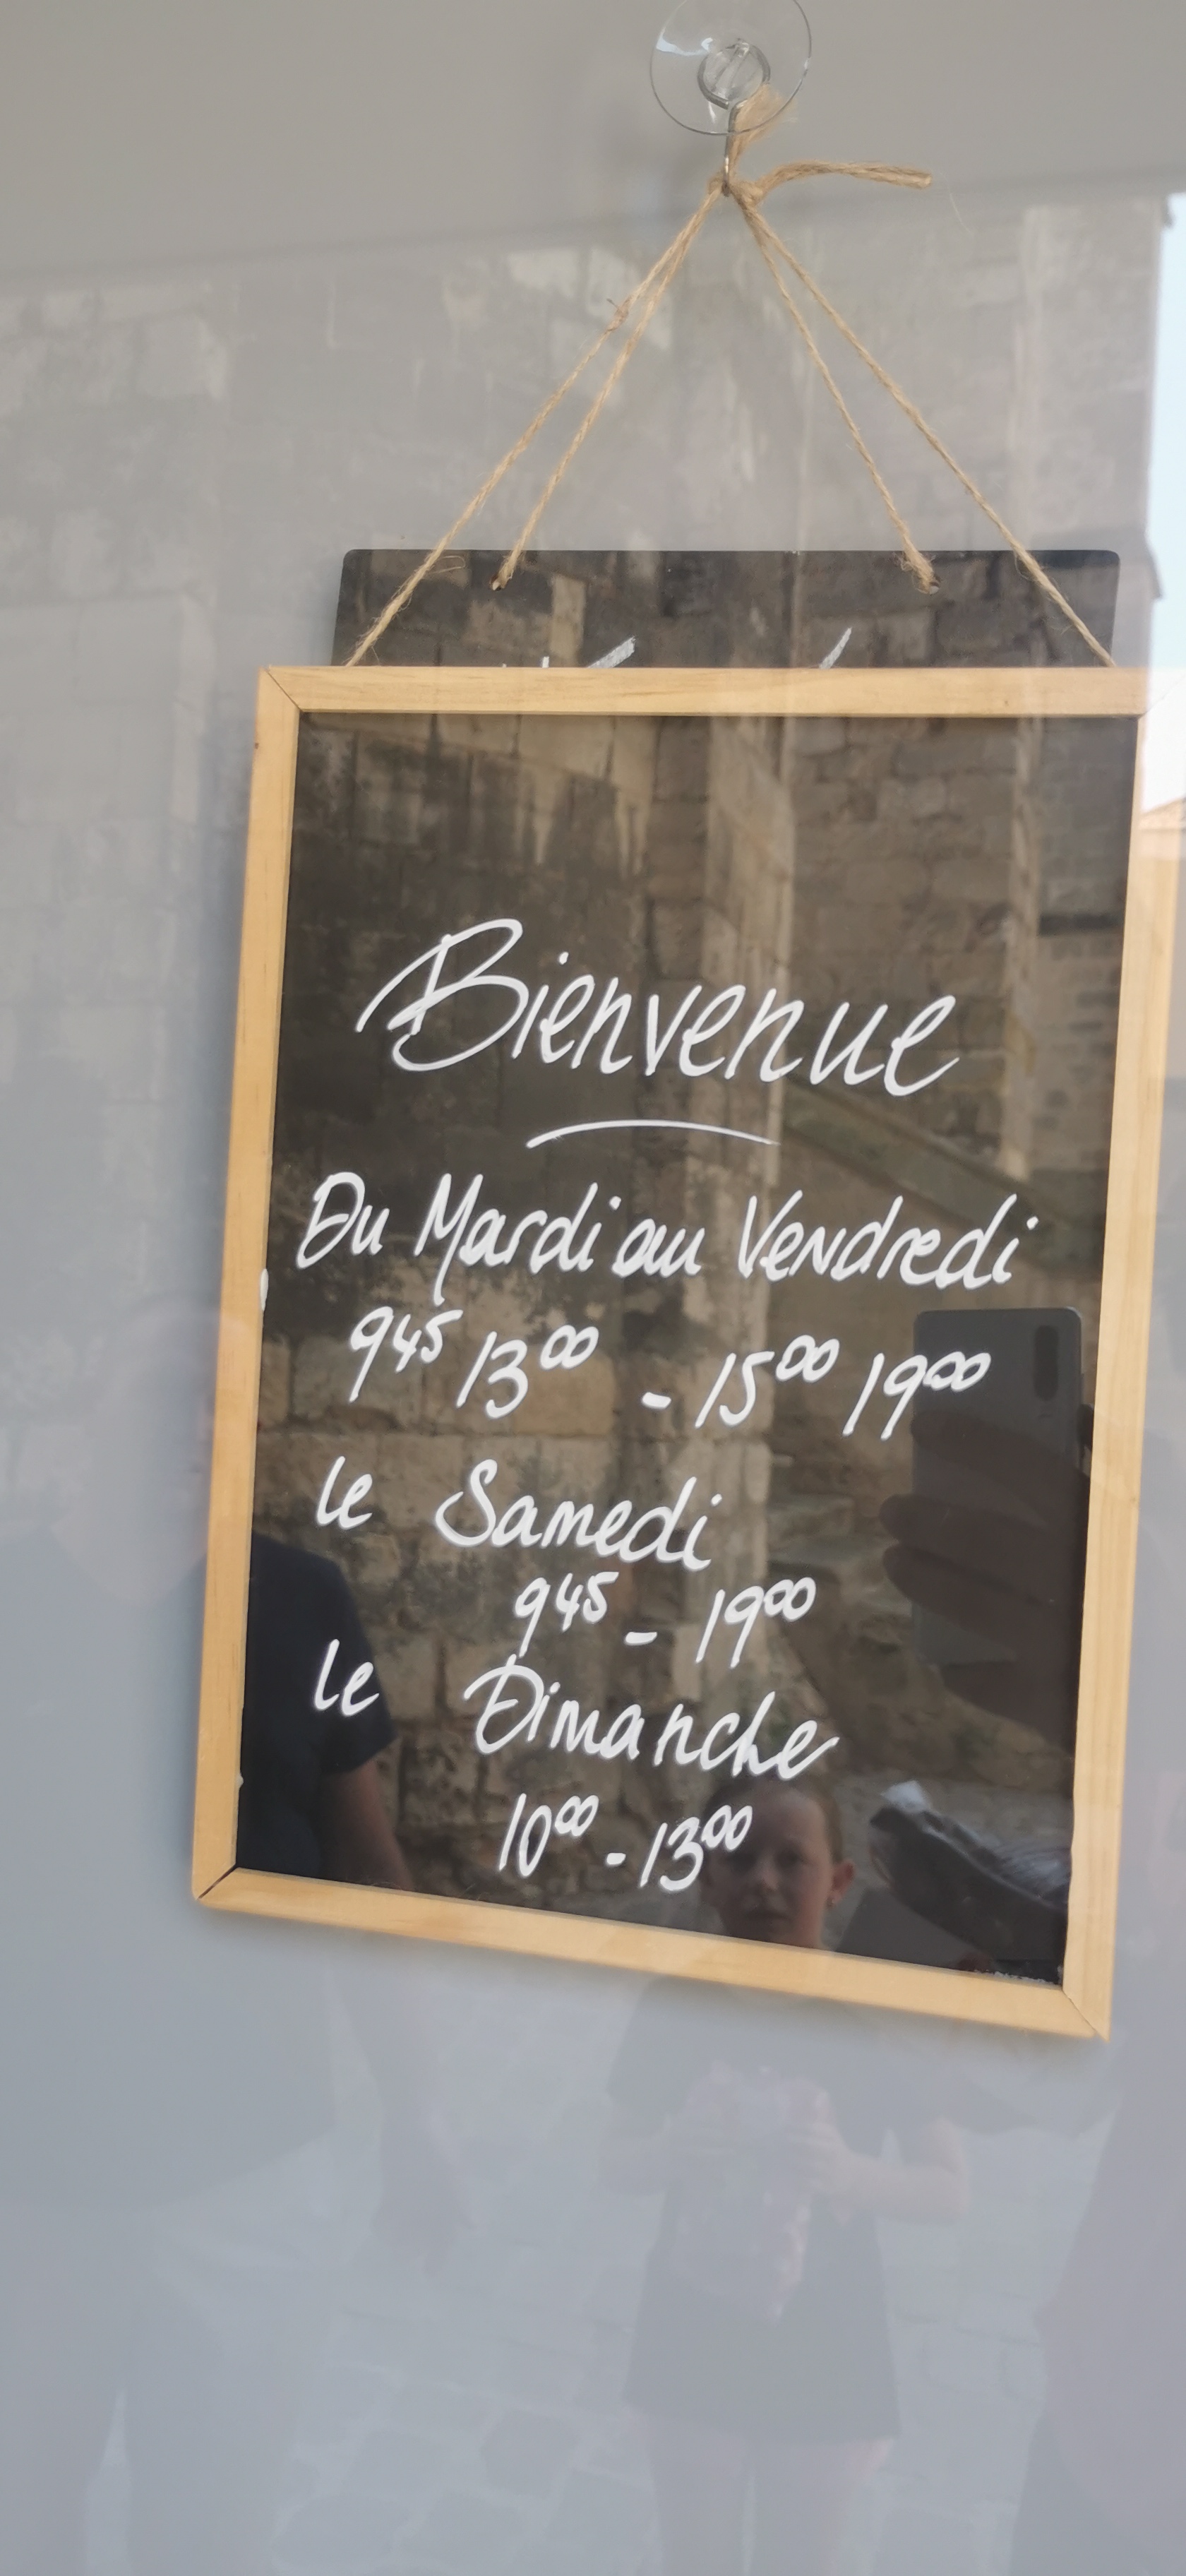 Bienvenue
Du Mardi au Vendredi
9⁴⁵ 13⁰⁰ - 15⁰⁰ 19⁰⁰
le Samedi
9⁴⁵ - 19⁰⁰
le Dimanche
10⁰⁰ - 13⁰⁰